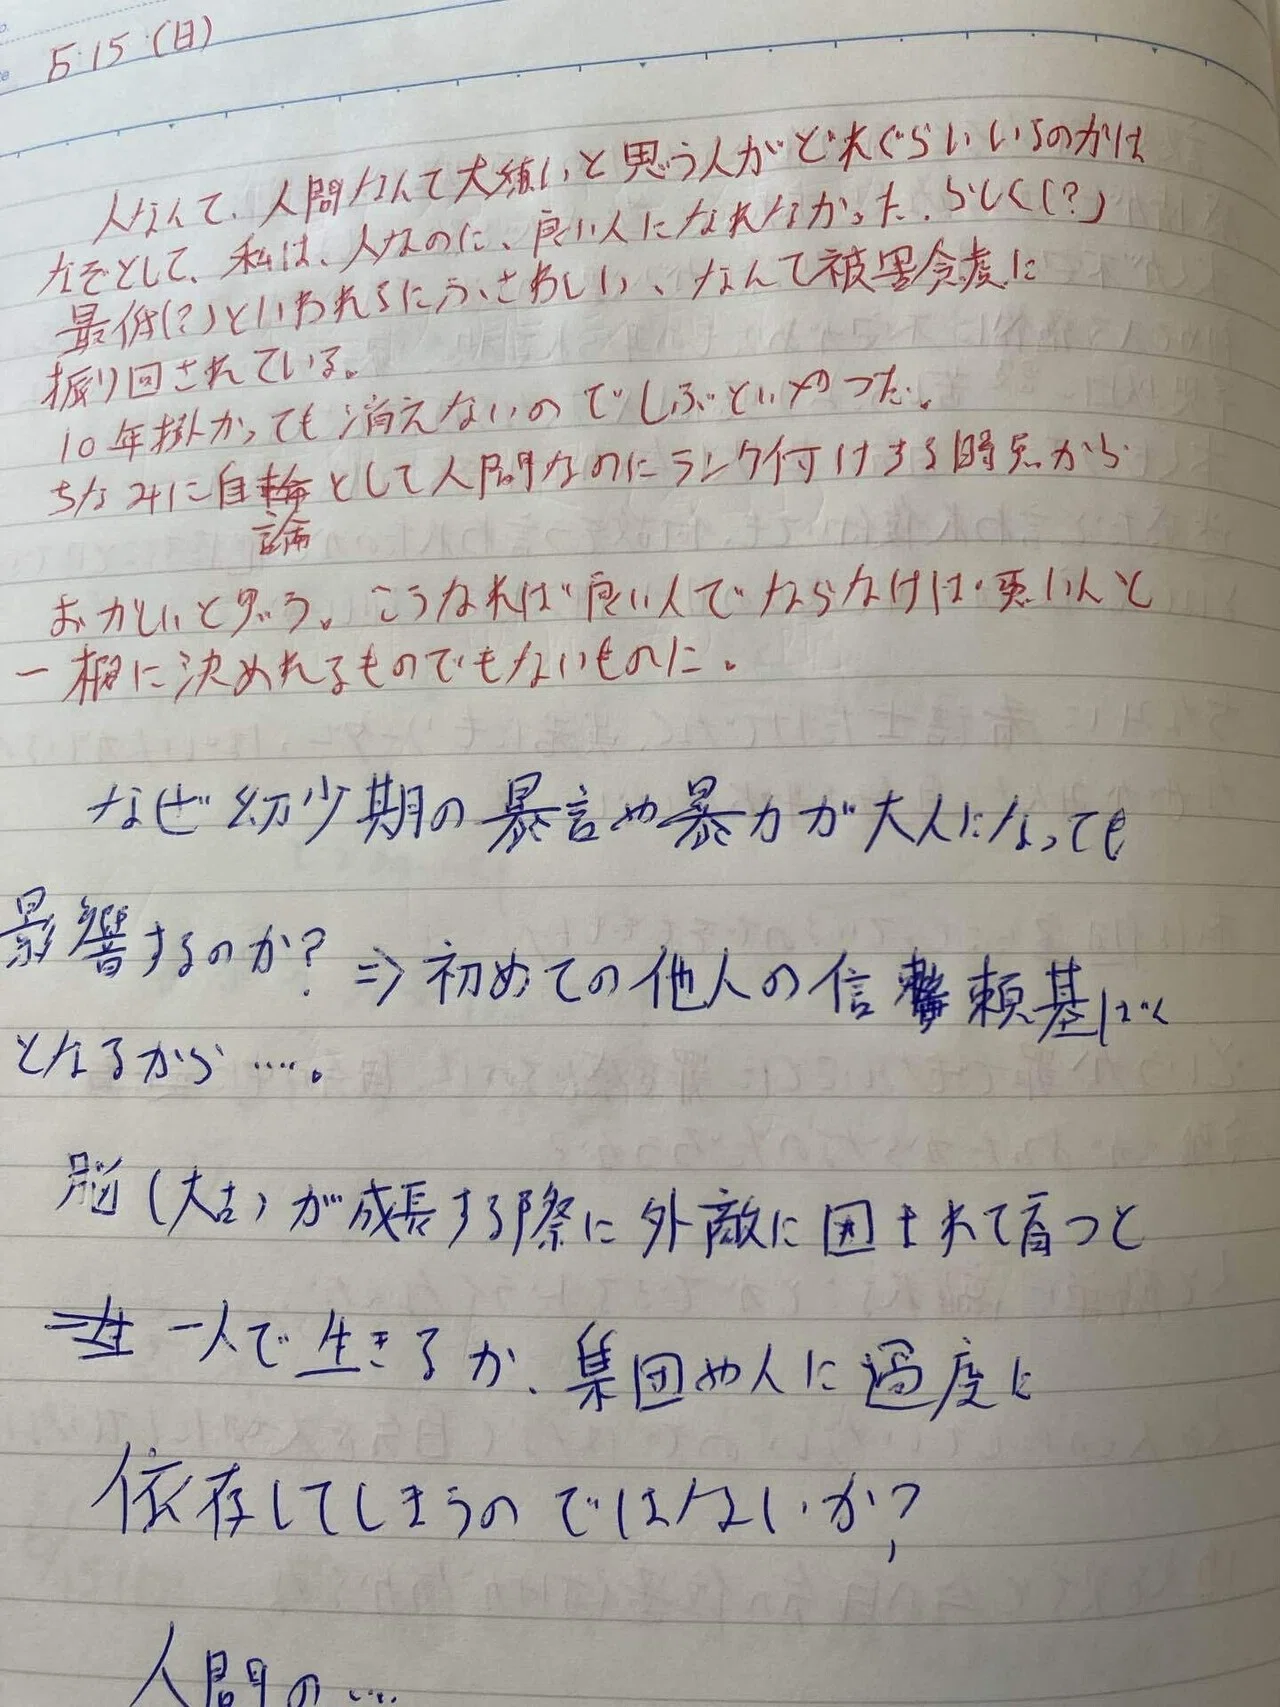 5.15.(日)
人なんて、人間なんて大嫌いと思う人がどれぐらいいるのかは
なぞとして、私は、人なのに、良い人になれなかった、らしく(?)
最低(?)といわれるにふさわしい、なんて被害念慮に
振り回されている。
10年掛かっても消えないのでしぶといやつだ。
ちなみに自論として人間なのにランク付けする時点から
おかしいと思う。こうなれば良い人でならなければ悪い人と
一概に決めれるものでもないものに。
なぜ幼少期の暴言や暴力が大人になっても
影響するのか? ⇒初めての他人の信頼基ばく
となるから…。
脳(大古)が成長する際に外敵に囲まれて育つと
一人で生きるか、集団や人に過度に
依存してしまうのではないか?
人間の…